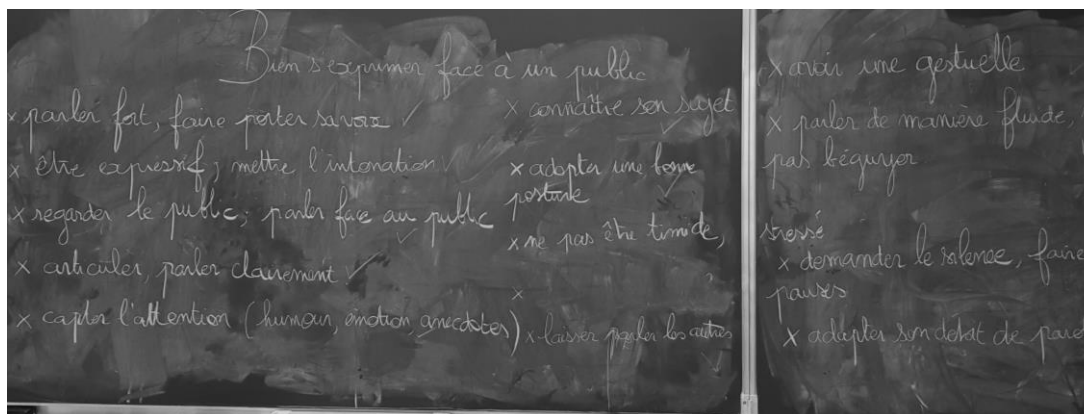 Bien s'exprimer face à un public
x parler fort, faire porter sa voix ✓
x être expressif ; mettre l'intonation ✓
x regarder le public ; parler face au public ✓
x articuler, parler clairement ✓
x capter l'attention (humour, émotion, anecdotes)
x connaître son sujet ✓
x adopter une bonne
posture ✓
x ne pas être timide,
stressé
x
x laisser parler les autres ✓
x avoir une gestuelle
x parler de manière fluide,
pas bégayer
x demander le silence, faire
pauses
x adapter son débit de